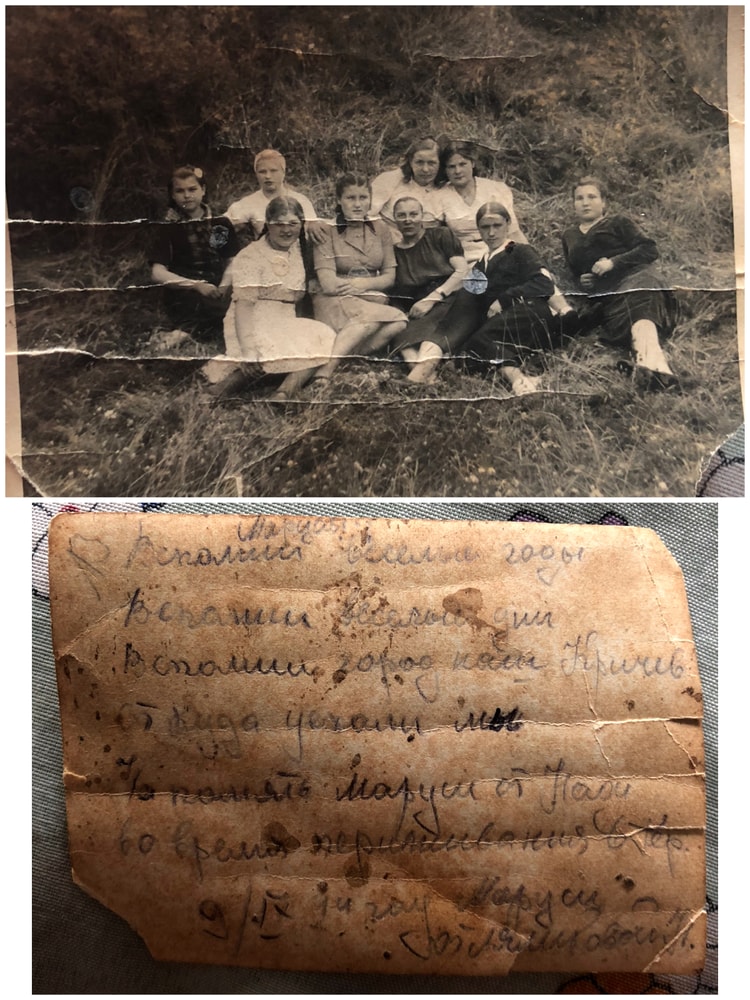 Маруся
Вспомни веселые годы
Вспомни веселые дни
Вспомни город наш Кричев
От куда уехали мы
На память Маруси от Нади
во время переживания в Гер.
9/IX 44 год Маруси
от